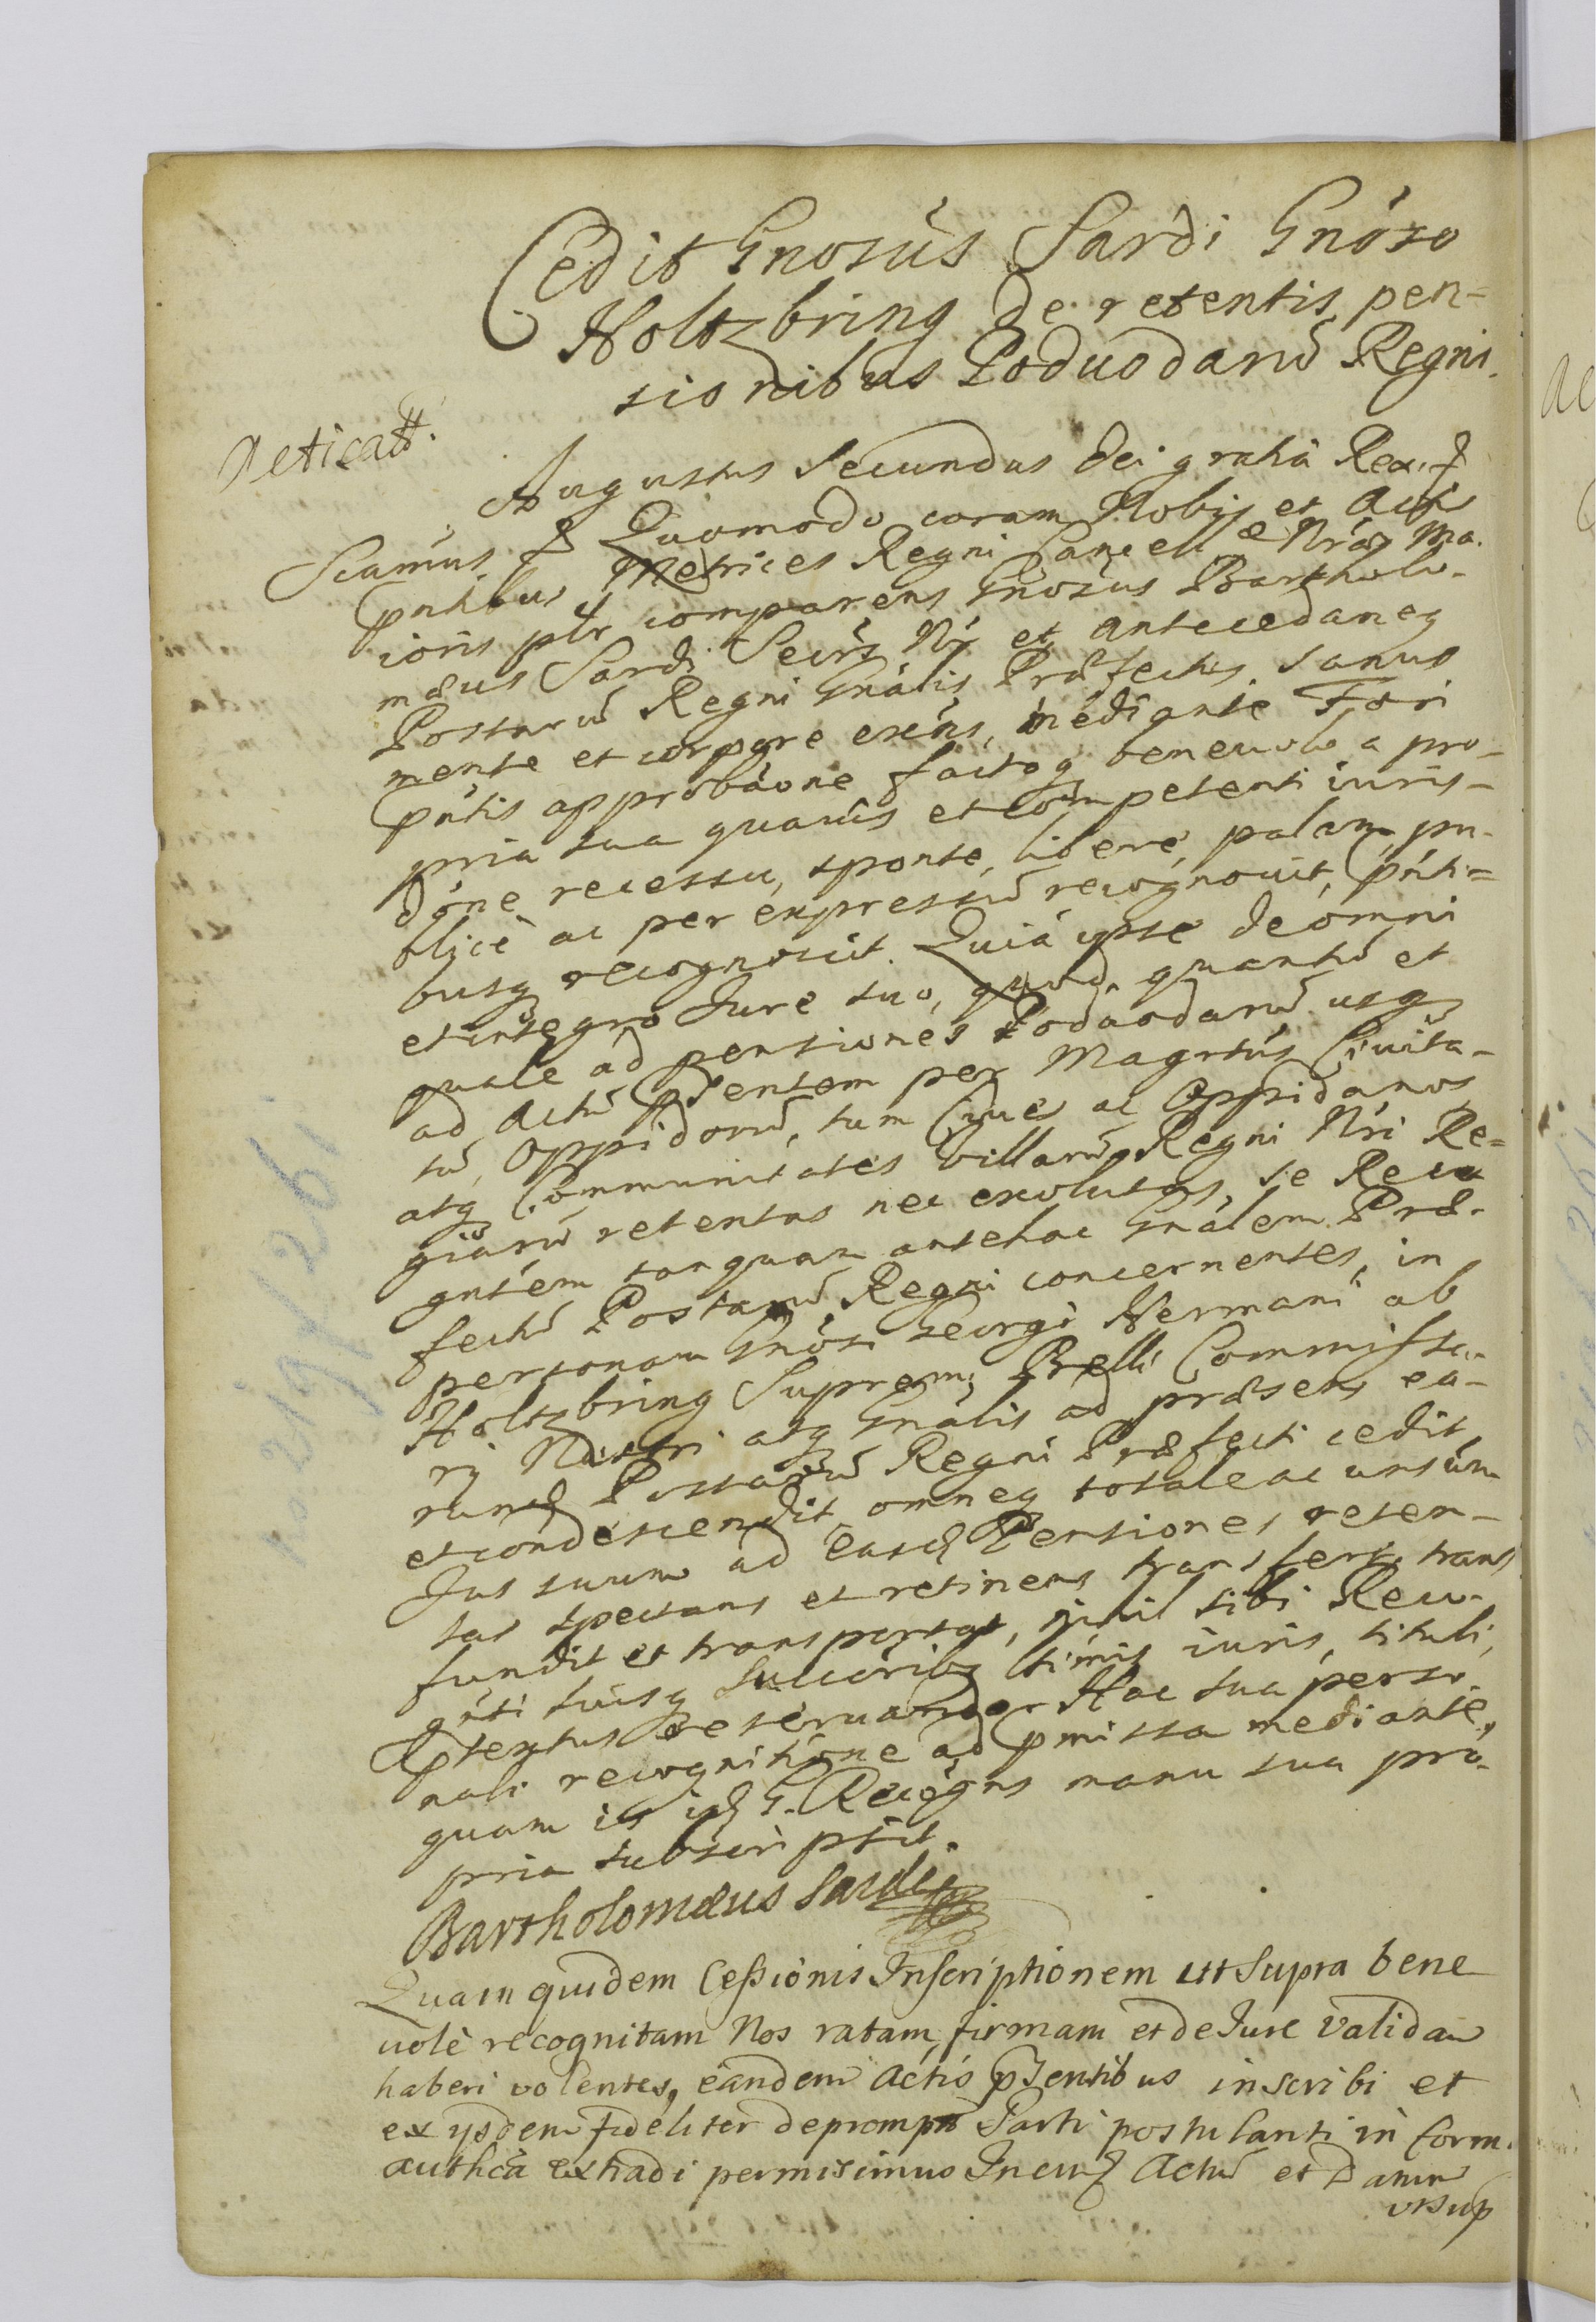 Cedit Gnosus Sardi Gnoso
Holtzbring de retentis pen=
sionibus Poduodarū Regni.
Augustus Secundus Dei gratiâ Rex. &
Scamus & Quomodo coram Nobis et Actis
pntibus Metrices Regni Cancell: Nrae Ma.
ioris plr comparens Gnosus Bartholo-
mæus Sardi Secrs Nr et Antecedaneq
Postarū Regni Gnalis Præfectus sanus
mente et corpore exens, mediante Fori
pntis approbaone factoq beneuolo a pro-
pria sua quavis et competenti iuris-
done recessu, sponte, libere, palam, pu-
blice ac per expressū recognouit, pnti-
busq recognoscit. Quia ipse de omni
et integro Jure suo, quod, quantū et
quale ad pensiones Podaodarū usq
ad Actū psentem per Magrtus Ciuita-
tū, Oppidorū, tum Ciues ac Oppidanos
atq Communitates Villarū Regni Nri Re=
giarū retentas nec exolutas, se Reco
gntem tanquam antehac Gnalem Præ-
fectū Postarū Regni concernentes, in
personam Gnosi Georgi Hermani ab
Holtzbring Supremi Belli Commissa-
rij Nostri atq Gnalis ad præsens ea-
rund Postarū Regni Præfecti cedit
et condescendit, omneq totale ac uersum
Jus suum ad easd Pensiones reten-
tas spectans et retinens transfert, trans
fundit et transportat, nihil sibi Reco-
gnti suisq Succoribq iuris, tituli,
ptextus reseruando. Hac sua perso-
nali recognitione ad pmissa mediante,
quam is id G. Recogns manu sua pro-
pria subscripsit.
Bartholomæus Sardi
Quam quidem Cessionis Inscriptionem ut supra bene
uole recognitam Nos ratam, firmam et de Jure Validam
haberi volentes, eandem Actis psentibus inscribi et
ex ysdem fideliter depromptā Parti postulanti in form.
authca extradi permisimus In cuiq Actū et Datum
ut sup